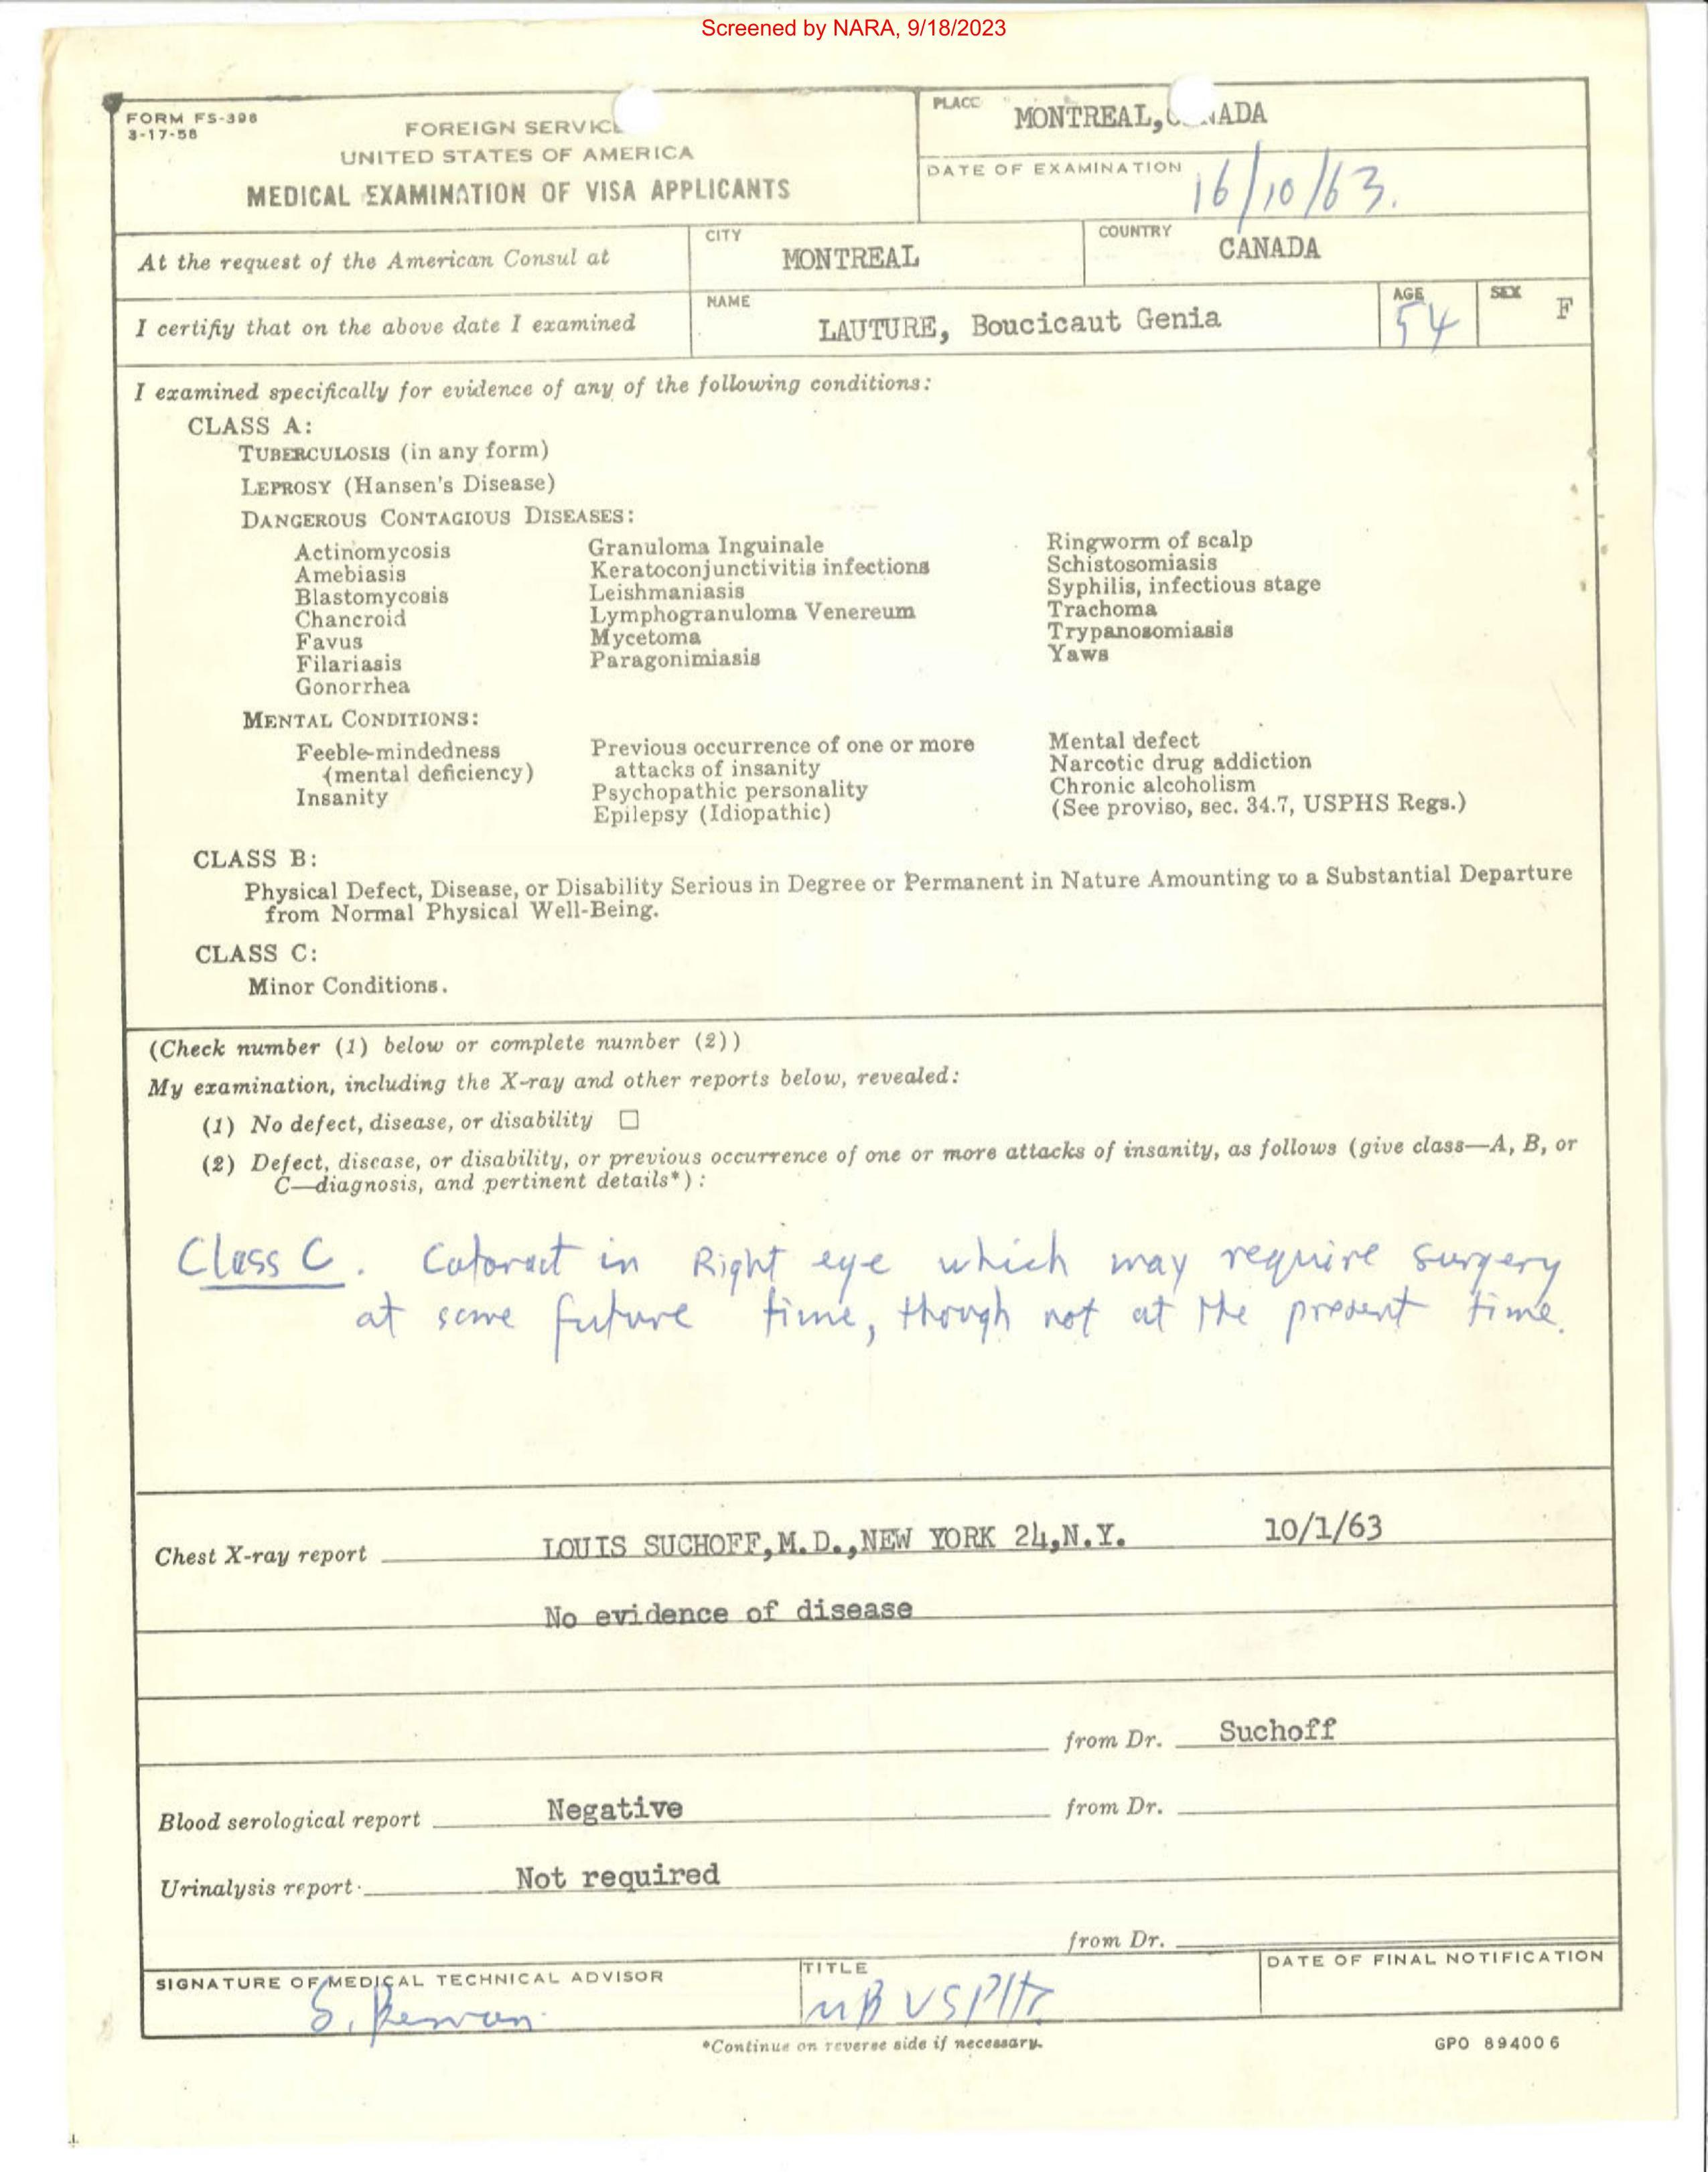 Screened by NARA, 9/18/2023
FORM FS-398
3-17-58
FOREIGN SERVICE
UNITED STATES OF AMERICA
MEDICAL EXAMINATION OF VISA APPLICANTS
PLACE MONTREAL, CANADA
DATE OF EXAMINATION 16/10/63.
At the request of the American Consul at
CITY MONTREAL
COUNTRY CANADA
I certify that on the above date I examined
NAME LAUTURE, Boucicaut Genia
AGE 54
SEX F
I examined specifically for evidence of any of the following conditions:
CLASS A:
TUBERCULOSIS (in any form)
LEPROSY (Hansen's Disease)
DANGEROUS CONTAGIOUS DISEASES:
Actinomycosis
Amebiasis
Blastomycosis
Chancroid
Favus
Filariasis
Gonorrhea
Granuloma Inguinale
Keratoconjunctivitis infections
Leishmaniasis
Lymphogranuloma Venereum
Mycetoma
Paragonimiasis
Ringworm of scalp
Schistosomiasis
Syphilis, infectious stage
Trachoma
Trypanosomiasis
Yaws
MENTAL CONDITIONS:
Feeble-mindedness
(mental deficiency)
Insanity
Previous occurrence of one or more
attacks of insanity
Psychopathic personality
Epilepsy (Idiopathic)
Mental defect
Narcotic drug addiction
Chronic alcoholism
(See proviso, sec. 34.7, USPHS Regs.)
CLASS B:
Physical Defect, Disease, or Disability Serious in Degree or Permanent in Nature Amounting to a Substantial Departure
from Normal Physical Well-Being.
CLASS C:
Minor Conditions.
(Check number (1) below or complete number (2))
My examination, including the X-ray and other reports below, revealed:
(1) No defect, disease, or disability □
(2) Defect, disease, or disability, or previous occurrence of one or more attacks of insanity, as follows (give class—A, B, or
C—diagnosis, and pertinent details*):
Class C. Cataract in Right eye which may require surgery
at some future time, though not at the present time.
Chest X-ray report LOUIS SUCHOFF,M.D.,NEW YORK 24,N.Y. 10/1/63
No evidence of disease
from Dr. Suchoff
Blood serological report Negative from Dr.
Urinalysis report Not required
from Dr.
SIGNATURE OF MEDICAL TECHNICAL ADVISOR
TITLE
DATE OF FINAL NOTIFICATION
*Continue on reverse side if necessary.
GPO 894006